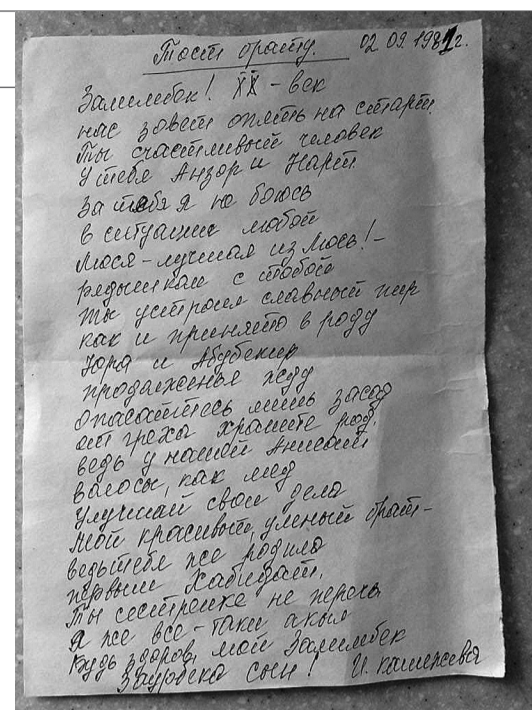 Тост брату. 02 09. 1981г.
Залимбек! XX - век
нас зовет опять на старт.
Ты счастливый человек
у тебя Анзор и Нарт.
За тебя я не боюсь
в ситуации любой
Люся - лучшая из Люсь! -
рядышком с тобой
ты устроил славный пир
как и принято в роду
Юра и Абубекир
продолженья жду
опасайтесь лишь засад
от греха храните род,
ведь у нашей
волосы, как мёд
Улучшай свои дела
мой красивый, умный брат -
ведь тебя же родила
первым
Ты сестренке не перечь
я же все - таки акын
Будь здоров, мой Залимбек
Заурбека сын! И. Кашежева